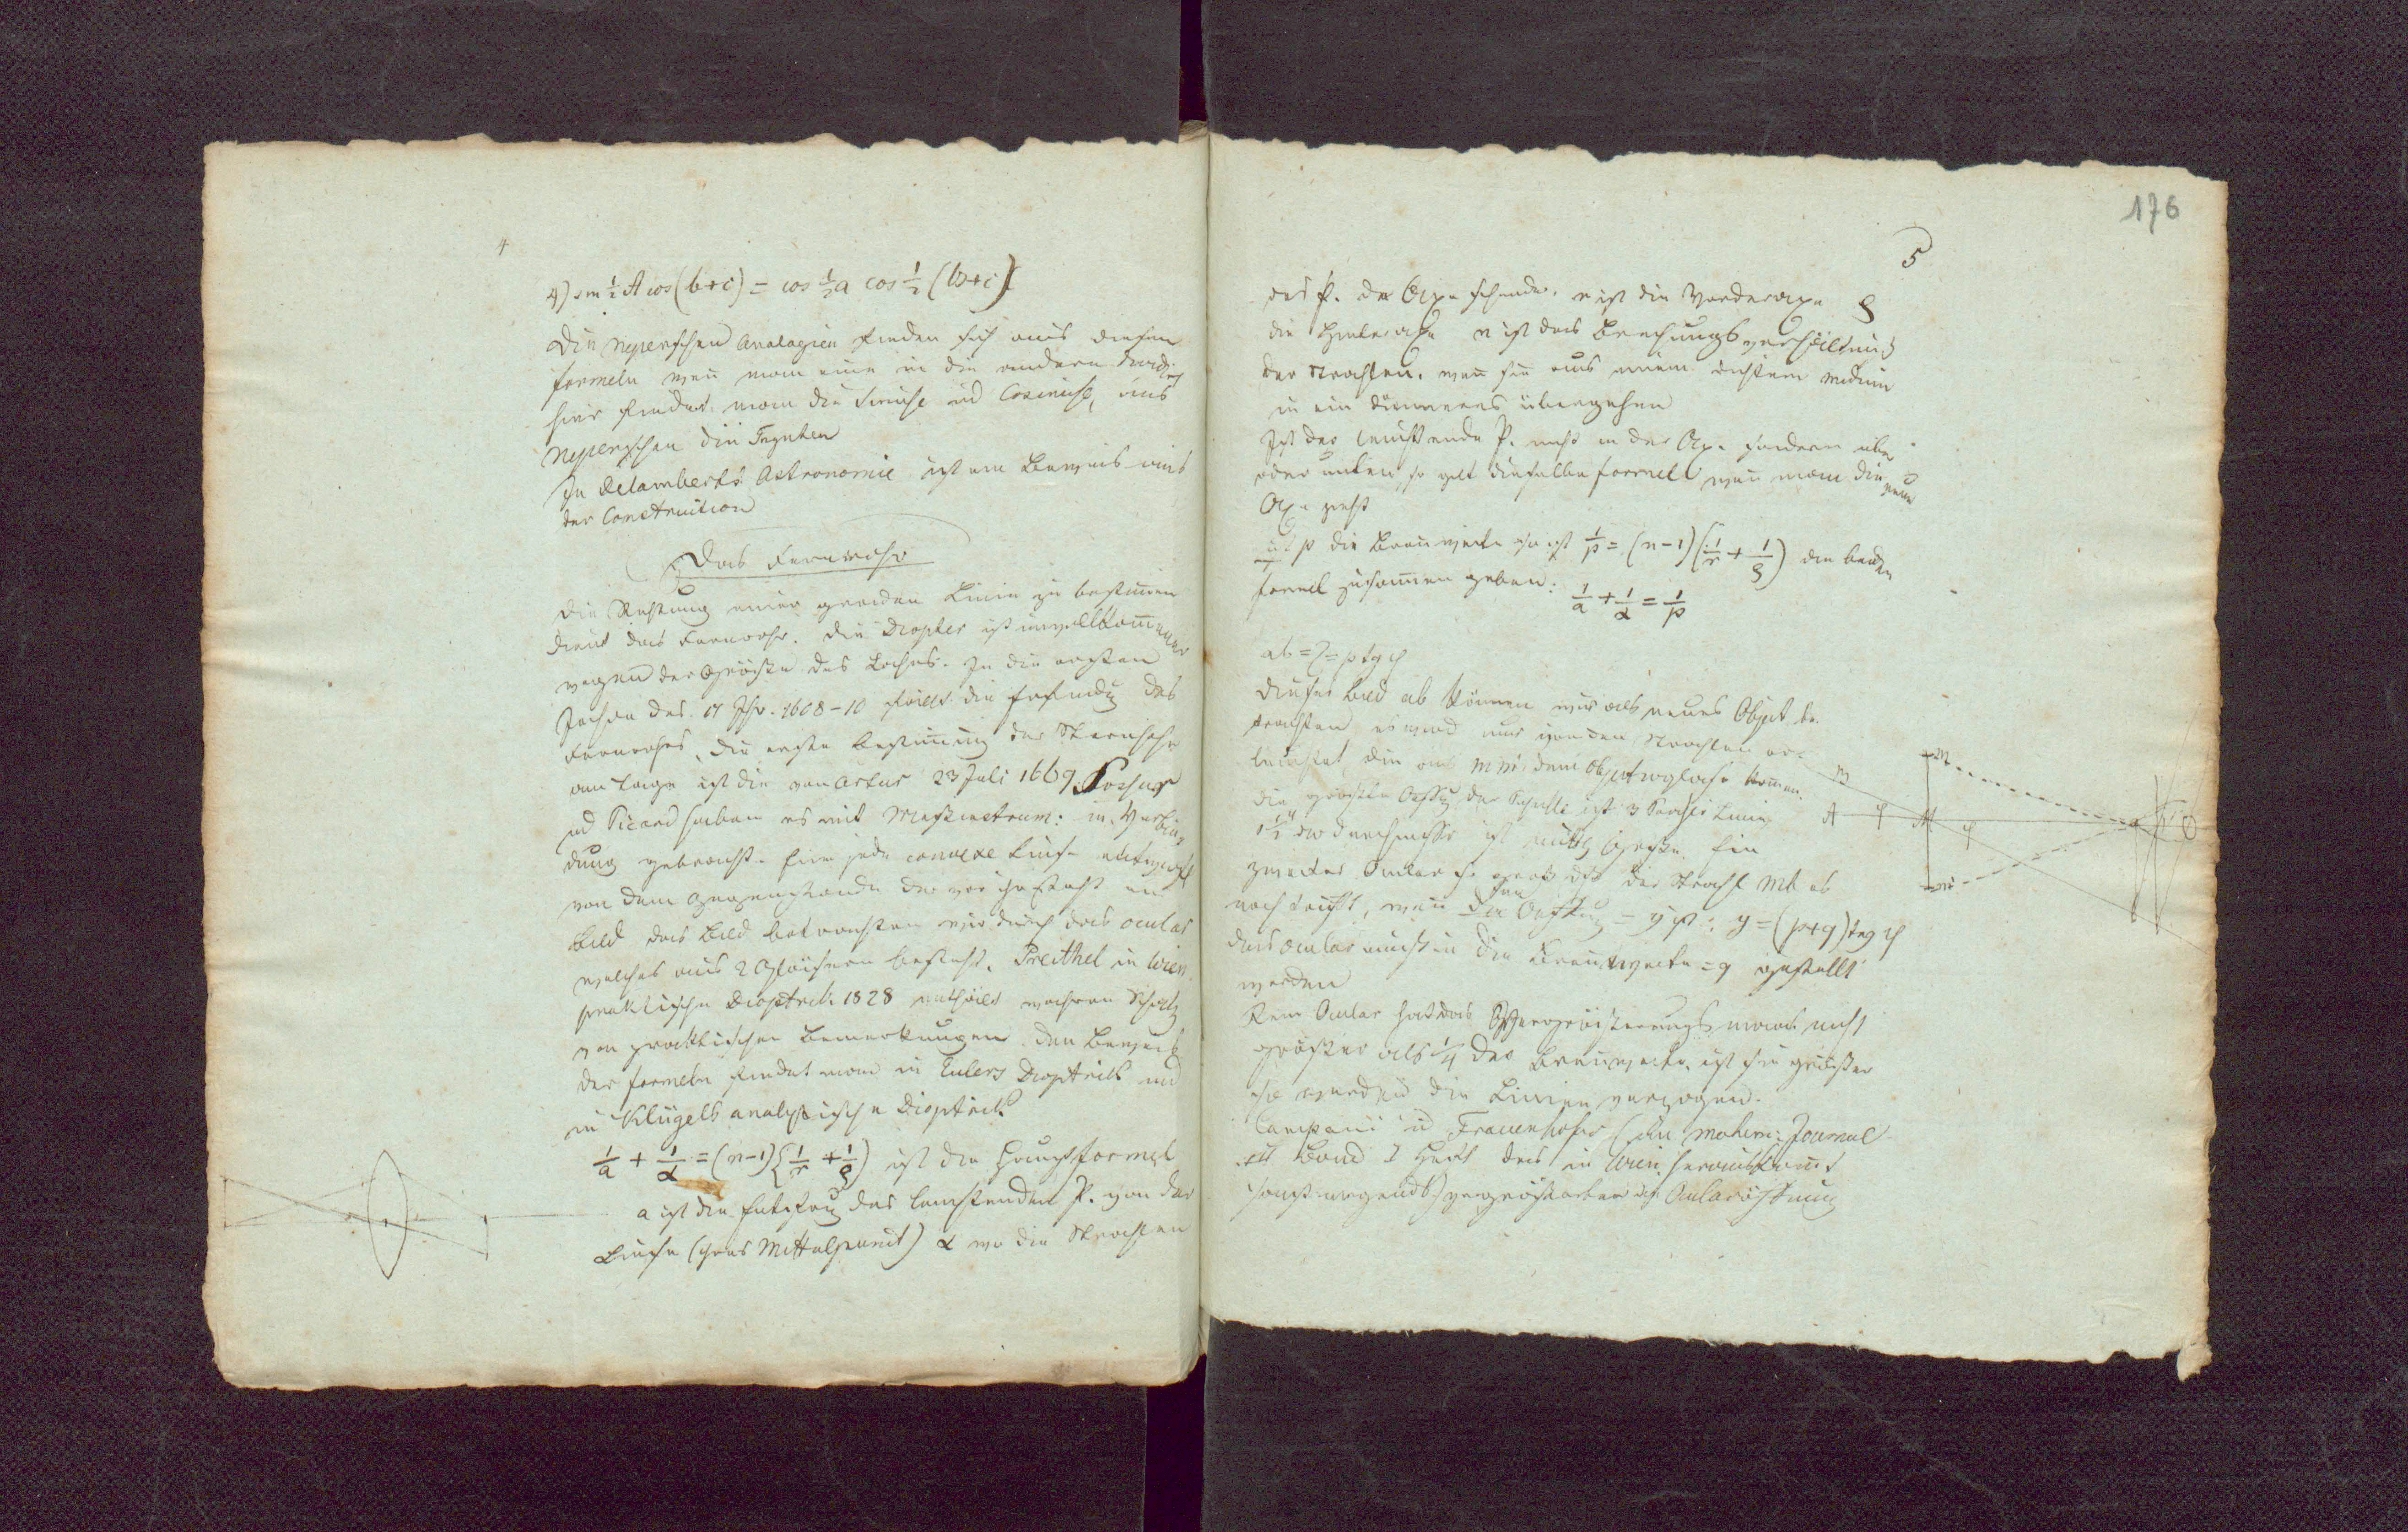 4
4) sin ½ A cos (b+c) = cos ½ a cos ½ (b+c)
Die Neperschen Analogien finden sich aus diesen
Formeln wen man eine in die andern dividirt
hier findet man die Sinuse und Cosinuse, aus
Neperschen die Tngnten
In Delamberts Astronomie ist ein Beweis aus
der Construction
Das Fernrohr
Die Richtung einer geraden Linie zu bestimen
dient das Fernrohr. Die Diopter ist unvollkomener
wegen der Größe des Loches. In die ersten
Jahre des 17 Jhr. 1608-10 fällt die Erfindg des
Fernrohrs, die erste Bestimung der Sternhöhe
am Tage ist die von Artur 23 Juli 1669.
und Picard haben es mit in Verbin
dung gebracht. Eine jede convexe Linse entwirft
von dem Gegenstande der vor ihr steht ein
Bild das Bild betrachten wir durch das Ocular
welches aus 2 Gläsern besteht. Preithel in Wien
praktische Dioptrik 1828 enthält wahren Schatz
von praktischen Bemerkungen. Den Beweis
der Formeln findet man in Eulers Dioptrik und
in Klügels analytische Dioptrik
1/a + 1/α = (n-1) (1/r + 1/ϱ) ist die Hauptformel
a ist die Entfrng des leuchtenden P. von der
Linse (ihres Mittelpunct) α wo die Strahlen
176
5
des P. die Axe schneiden. r ist die Vorderaxe ϱ
die Hinteraxe n ist das Brechungsverhältniß
der Strahlen. wen sie aus einem dichtern Medium
in ein dünneres übergehen
Ist der leuchtende P. nicht in der Axe sondern über
oder unten, so gilt dieselbe Formel wen man die neue
Axe zieht
ist p die Brenweite so ist 1/p = (n-1) (1/r + 1/ϱ) die beiden
Formel zusamen geben: 1/a + 1/α = 1/p
ab = = p tg φ
Dieses Bild ab können wir als neues Object be
trachten es wird nur von den Strahlen er-
leuchtet, die aus m m' dem Objectivglase komen.
die größte der ist 3 Pariser Linien
1½''' der Durchmesser ist Größe. Ein
zweites Ocular so groß daß der Strahl Mb es
noch trifft, wen die Oefnug = y ist: y = (p+q) tng φ
das Ocular muß in die Brenweite = q gestellt
werden
Kein Ocular hat das Vergrößerungs nicht
größer als ¼ der Brenweite. ist sie größer
so werden die Linien verzogen.
Campani und Frauenhofer (im Journal
Band I Heft das in Wien herauskomt
sonst nirgends) vergrößerten die Ocularöfnung
m
M
A
φ
M
φ
m'